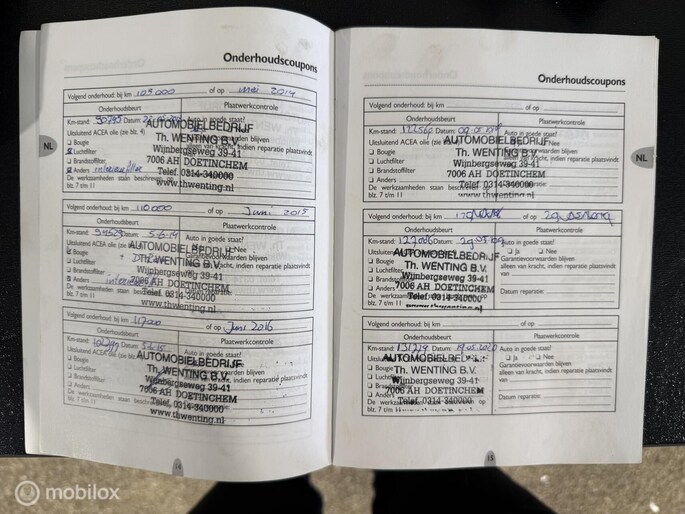 Onderhoudscoupons
Volgend onderhoud: bij km 105.000 of op mei 2014
Onderhoudsbeurt Plaatwerkcontrole
Km-stand: Datum:
Uitsluitend ACEA olie (zie blz. 4)
Bougie
Luchtfilter
Brandstoffilter
Anders interieurfilter
De werkzaamheden staan beschreven op
blz. 7 t/m 11
AUTOMOBIELBEDRIJF
Th. WENTING B.V.
Wijnbergseweg 39-41
7006 AH DOETINCHEM
Telef. 0314-340000
www.thwenting.nl
NL
Volgend onderhoud: bij km 110.000 of op Juni 2015
Onderhoudsbeurt Plaatwerkcontrole
Km-stand: Datum: 5.6.14 Auto in goede staat?
Uitsluitend ACEA olie (zie
Bougie
Luchtfilter
Brandstoffilter
Anders
De werkzaamheden staan beschreven op
blz. 7 t/m 11
AUTOMOBIELBEDRIJF
Th. WENTING B.V.
Wijnbergseweg 39-41
7006 AH DOETINCHEM
Telef. 0314-340000
www.thwenting.nl
Volgend onderhoud: bij km 117000 of op Juni 2016
Onderhoudsbeurt Plaatwerkcontrole
Km-stand: Datum: 5.6.15 Auto in goede staat?
Uitsluitend ACEA olie
Bougie
Luchtfilter
Brandstoffilter
Anders
De werkzaamheden staan beschreven op
blz. 7 t/m 11
AUTOMOBIELBEDRIJF
Th. WENTING B.V.
Wijnbergseweg 39-41
7006 AH DOETINCHEM
Telef. 0314-340000
www.thwenting.nl
14
Onderhoudscoupons
Volgend onderhoud: bij km of op
Onderhoudsbeurt Plaatwerkcontrole
Km-stand: Datum: Auto in goede staat?
Uitsluitend ACEA olie (zie
Bougie
Luchtfilter
Brandstoffilter
Anders
De werkzaamheden staan beschreven op
blz. 7 t/m 11
AUTOMOBIELBEDRIJF
Th. WENTING B.V.
Wijnbergseweg 39-41
7006 AH DOETINCHEM
Telef. 0314-340000
www.thwenting.nl
NL
Volgend onderhoud: bij km of op
Onderhoudsbeurt Plaatwerkcontrole
Km-stand: 127006 Datum: Auto in goede staat?
Bougie
Luchtfilter
Brandstoffilter
Anders
Garantievoorwaarden blijven
alleen van kracht, indien reparatie plaatsvindt
van
De werkzaamheden staan
blz. 7 t/m 11
AUTOMOBIELBEDRIJF
Th. WENTING B.V.
Wijnbergseweg 39-41
7006 AH DOETINCHEM
Telef. 0314-340000
Volgend onderhoud: bij km of op
Onderhoudsbeurt Plaatwerkcontrole
Km-stand: 131719 Datum: 19.05.2020 Auto in goede staat?
Ja Nee
Bougie
Luchtfilter
Brandstoffilter
Anders
Garantievoorwaarden blijven
alleen van kracht, indien reparatie plaatsvindt
van
Datum reparatie:
De werkzaamheden staan beschreven op
blz. 7 t/m 11
AUTOMOBIELBEDRIJF
Th. WENTING B.V.
Wijnbergseweg 39-41
7006 AH DOETINCHEM
Telef. 0314-340000
www.thwenting.nl
15
mobilox